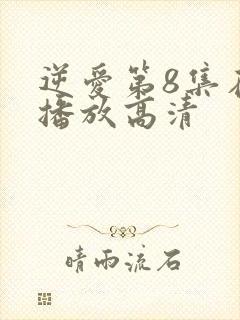 逆愛第8集
播放高清
晴雨流石